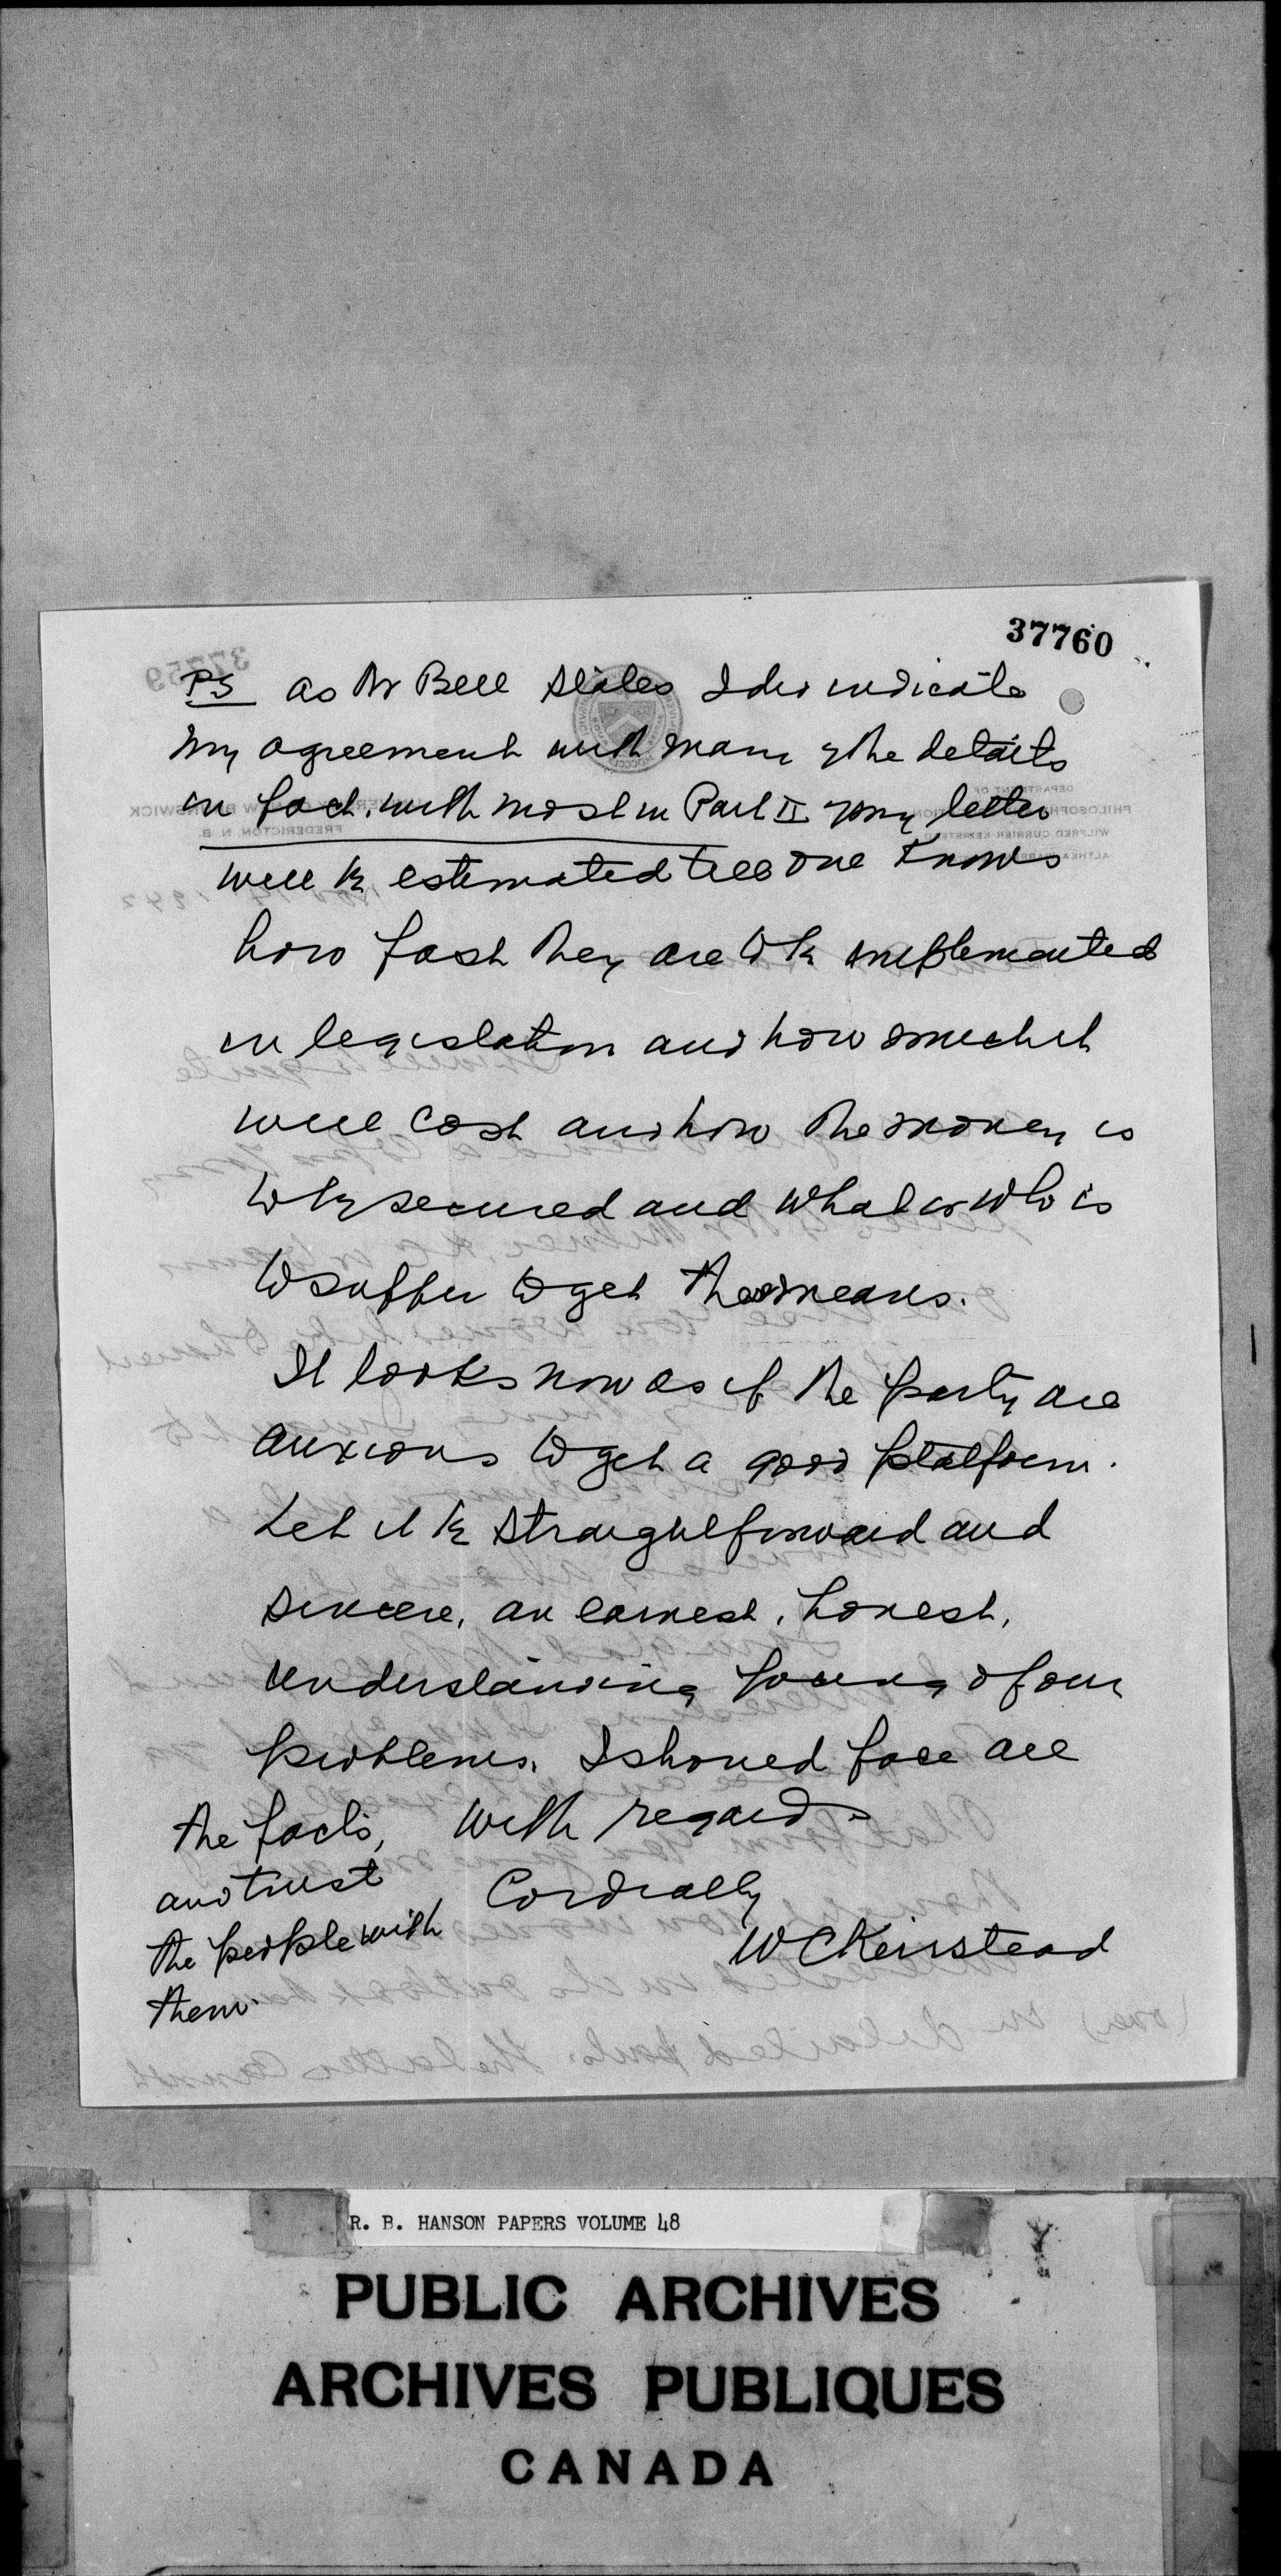 37760
PS as Dr Bell states I did indicate
my agreement with many of the details
in fact, with most in Part II of my letter
well be estimated till one knows
how fast they are to be implemented
in legislation and how much it
will cost and how the money is
to be secured and what or who is
to suffer to get the means.
It looks now as if the party are
anxious to get a good platform.
Let it be straightforward and
sincere, an earnest, honest,
understanding facing of our
problems. I should face all
the facts,
and trust
the people with
them.
With regards
Cordially
W C Keirstead
R. B. HANSON PAPERS VOLUME 48
PUBLIC ARCHIVES
ARCHIVES PUBLIQUES
CANADA